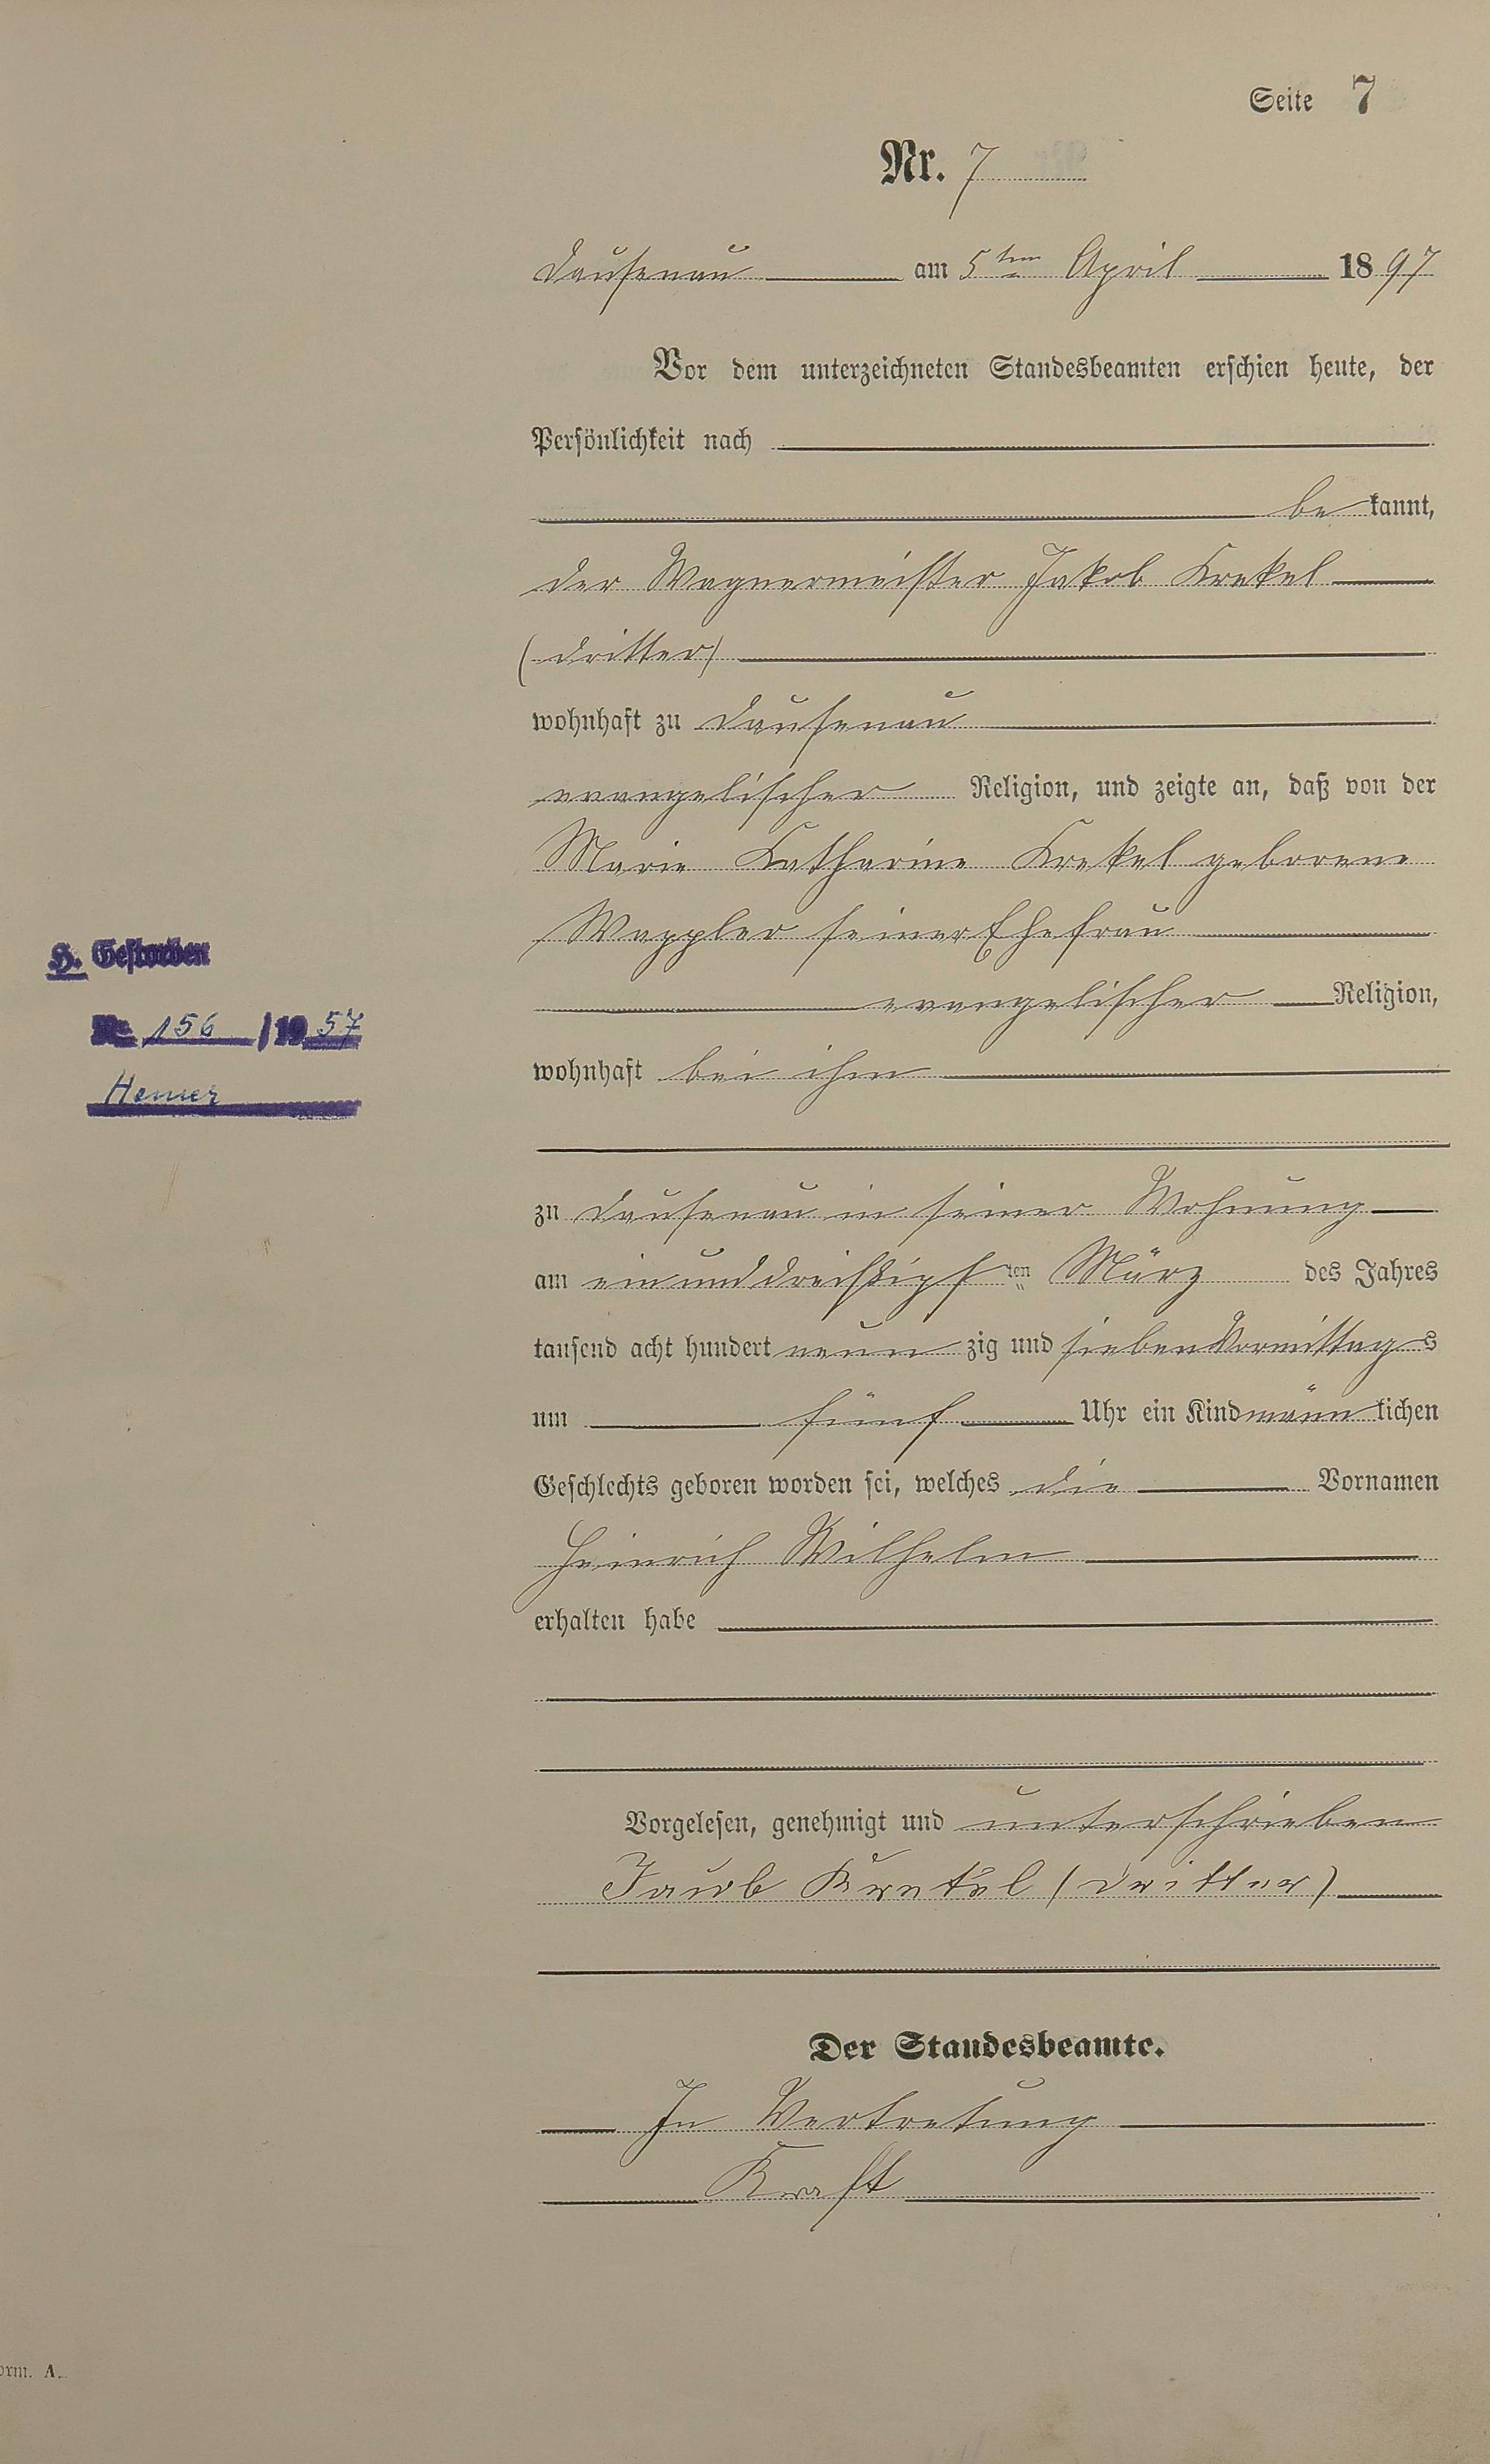 Seite 7
Nr. 7
Dausenau am 5ten April 1897
Vor dem unterzeichneten Standesbeamten erschien heute, der
Persönlichkeit nach
be kannt,
der Wagnermeister Jakob Krekel
(dritter)
wohnhaft zu Dausenau
evangelischer Religion, und zeigte an, daß von der
Marie Katharine Krekel geborene
Wappler seiner Ehefrau
evangelischer Religion,
H. Gestorben
Nr. 156 / 1957
Hemer
wohnhaft bei ihm
zu Dausenau in seiner Wohnung
am einunddreißigsten März des Jahres
tausend acht hundert neun zig und sieben Vormittags
um fünf Uhr ein Kind männlichen
Geschlechts geboren worden sei, welches die Vornamen
Heinrich Wilhelm
erhalten habe
Vorgelesen, genehmigt und unterschrieben
Jacob Krekel (dritter)
Der Standesbeamte.
In Vertretung
Kraft
orm. A.